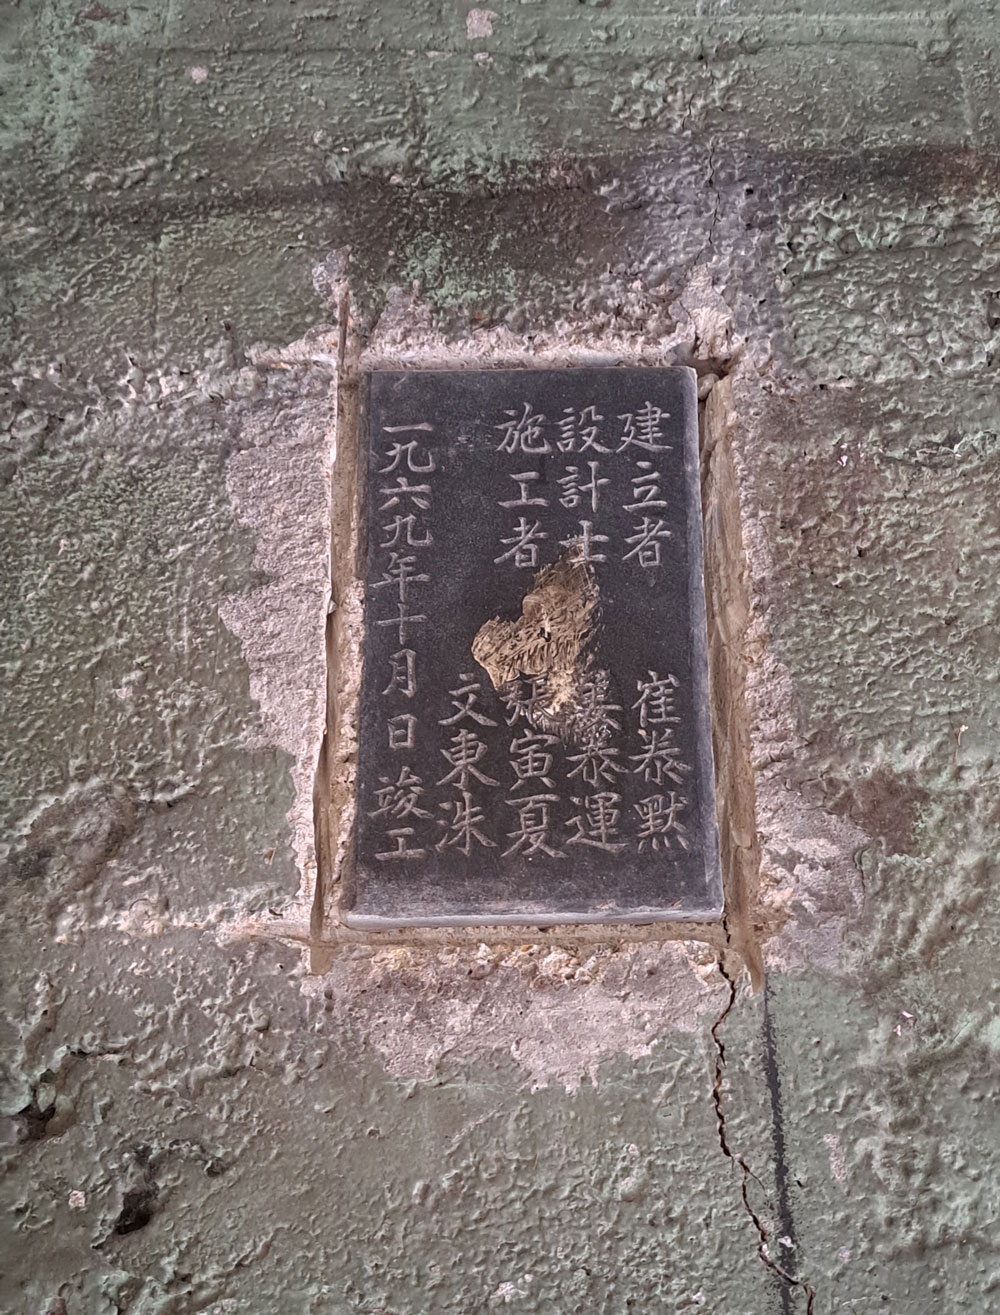 建立者 崔泰默
設計士 泰運
施工者 寅夏
文東洙
一九六九年十月日 竣工